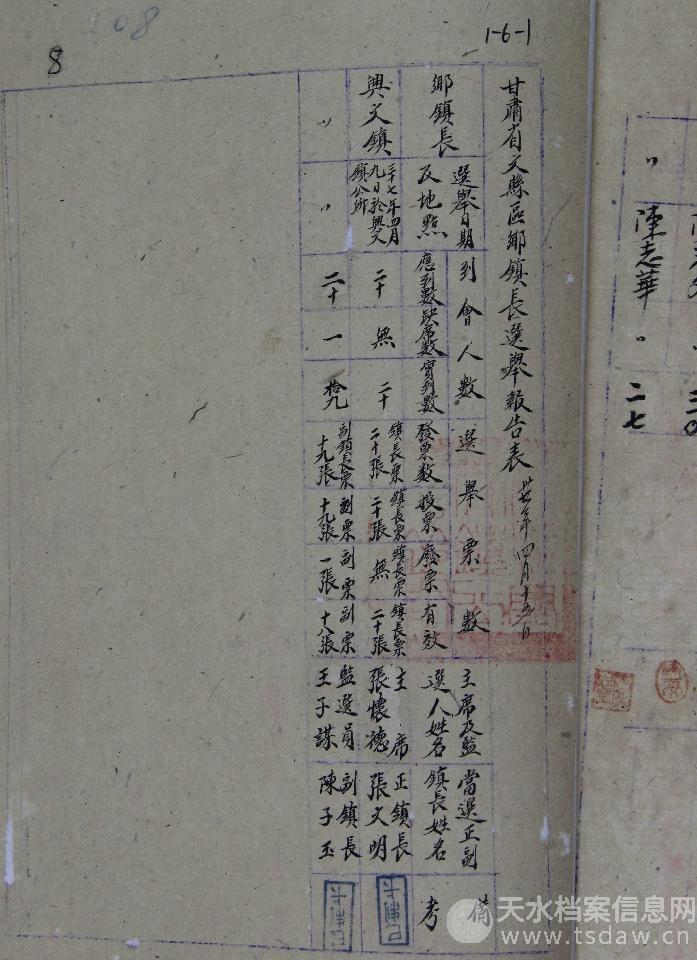 08
8
1-6-1
甘肅省文縣區鄉鎮長選舉報告表 卅七年四月十五日
鄉鎮長
選舉日期及地點
到會人數
應到數
缺席數
實到數
選舉票數
發票數
投票
廢票
有效
主席及監選人姓名
當選正副鎮長姓名
備考
興文鎮
三十七年四月九日於興文鎮公所
二十
無
二十
鎮長票二十張
鎮長票二十張
鎮長票無
鎮長票二十張
主席張懷德
正鎮長張文明
〃
〃
二十
一
拾九
副鎮長票十九張
副票十九張
副票一張
副票十八張
監選員王子謀
副鎮長陳子玉
三〇
〃 陳志華 〃 二七
天水档案信息网
www.tsdaw.cn